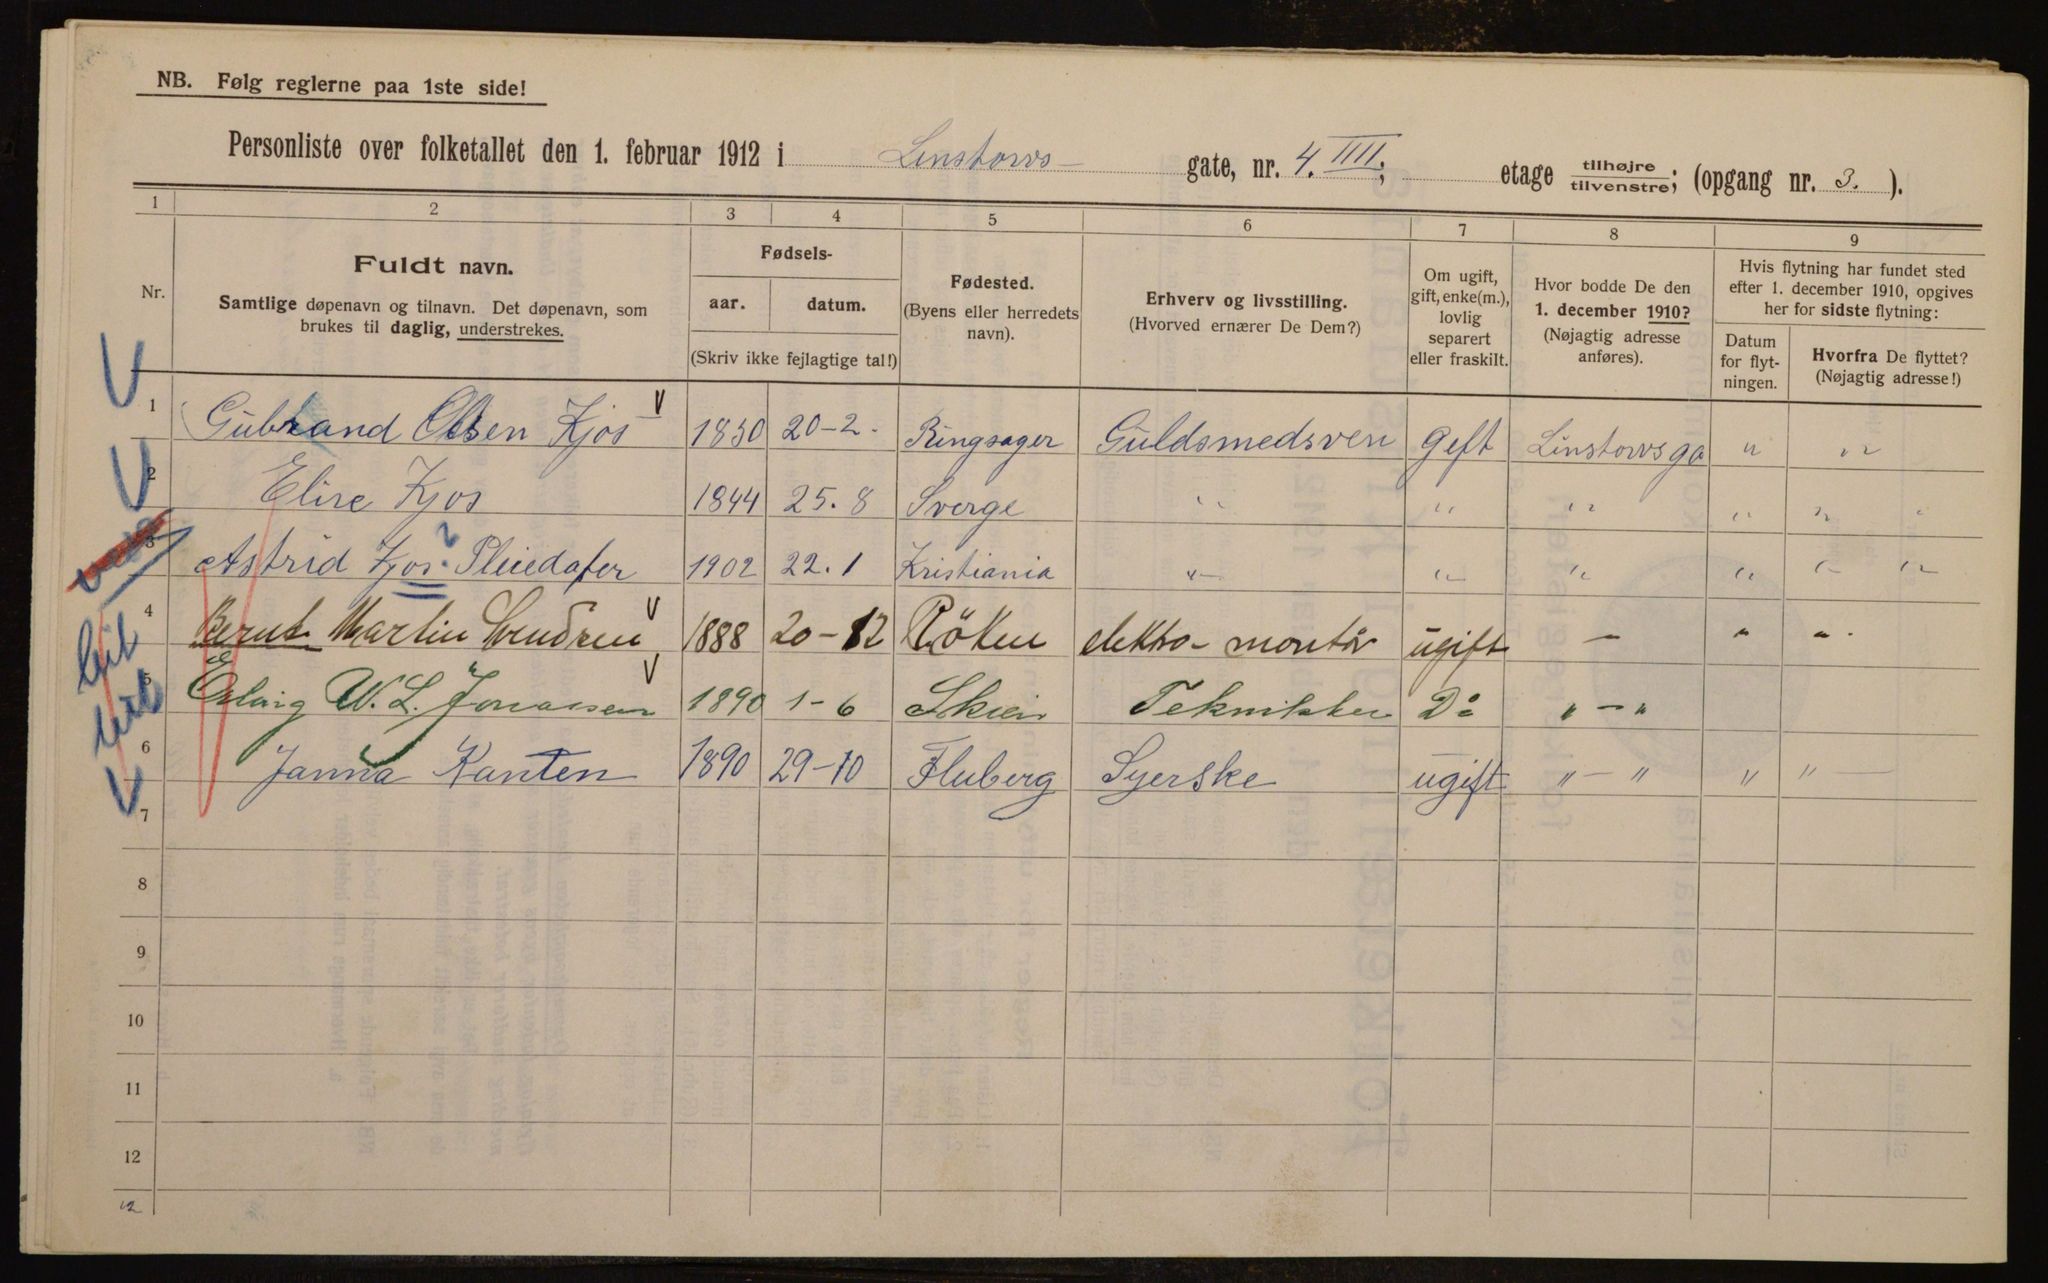 NB. Følg reglerne paa 1ste side!
Personliste over folketallet den 1. februar 1912 i Linstows- gate, nr. 4. IIII; etage tilhøjre/tilvenstre; (opgang nr. 3. ).
1 2 3 4 5 6 7 8 9
Nr. Fuldt navn. Samtlige døpenavn og tilnavn. Det døpenavn, som brukes til daglig, understrekes.
Fødsels- aar. datum. (Skriv ikke fejlagtige tal!)
Fødested. (Byens eller herredets navn).
Erhverv og livsstilling. (Hvorved ernærer De Dem?)
Om ugift, gift, enke(m.), lovlig separert eller fraskilt.
Hvor bodde De den 1. december 1910? (Nøjagtig adresse anføres).
Hvis flytning har fundet sted efter 1. december 1910, opgives her for sidste flytning:
Datum for flytningen. Hvorfra De flyttet? (Nøjagtig adresse!)
1 Gubrand Olsen Kjos V 1850 20-2. Ringsager Guldsmedsven Gift Linstowsga " "
2 Elise Kjos 1844 25.8 Sverge " " " " " "
3 Astrid Kjos? Pleiedater 1902 22.1 Kristiania " " " " " "
4 Bernt Martin V 1888 20-12 Röken elektro-montör ugift - " " .
5 W. L. V 1890 1-6 Skien Tekniker Do " - "
6 Janna Kanten 1890 29-10 Fluberg Syerske ugift " - " " " -
7
8
9
10
11
12
12